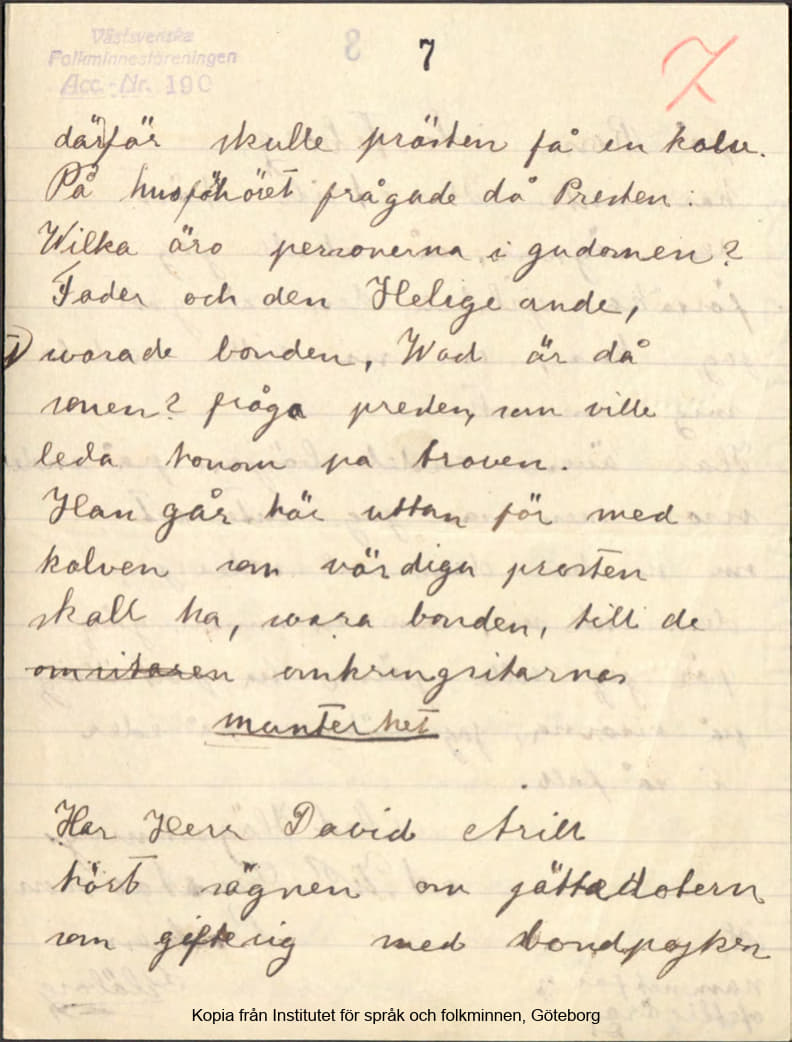 Västsvenska
Folkminnesföreningen
Acc.-Nr. 190
8
7
7
därför skulle prästen få en kalv.
På husförhöret frågade då Presten:
Wilka äro personerna i gudomen?
Fader och den Helige ande,
svarade bonden, Wad är då
sonen? fråga presten, som ville
leda honom på traven.
Han går här uttan för med
kalven som värdiga prosten
skall ha, svara bonden, till de
omsitaren omkringsitarnas
munterhet
Har Herr David Arill
hört sägnen om jättedotern
som gifte sig med bondpojken
Kopia från Institutet för språk och folkminnen, Göteborg